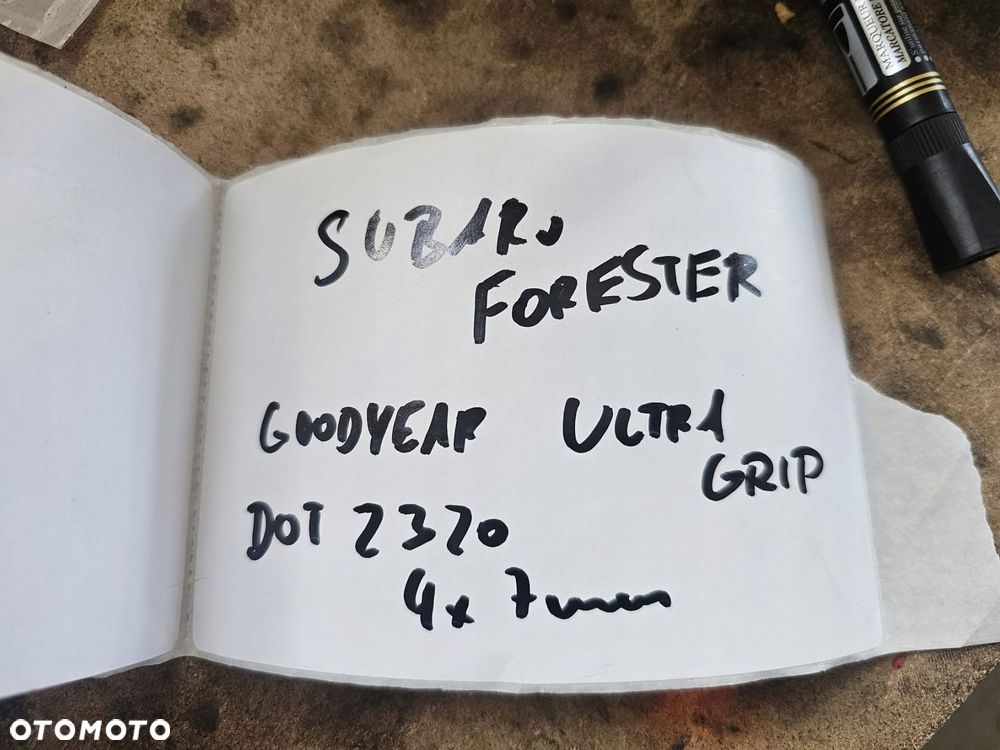 SUBARU
FORESTER
GOODYEAR ULTRA
GRIP
DOT 2320
4x 7mm
MARQUEUR
MARCATORE
OTOMOTO